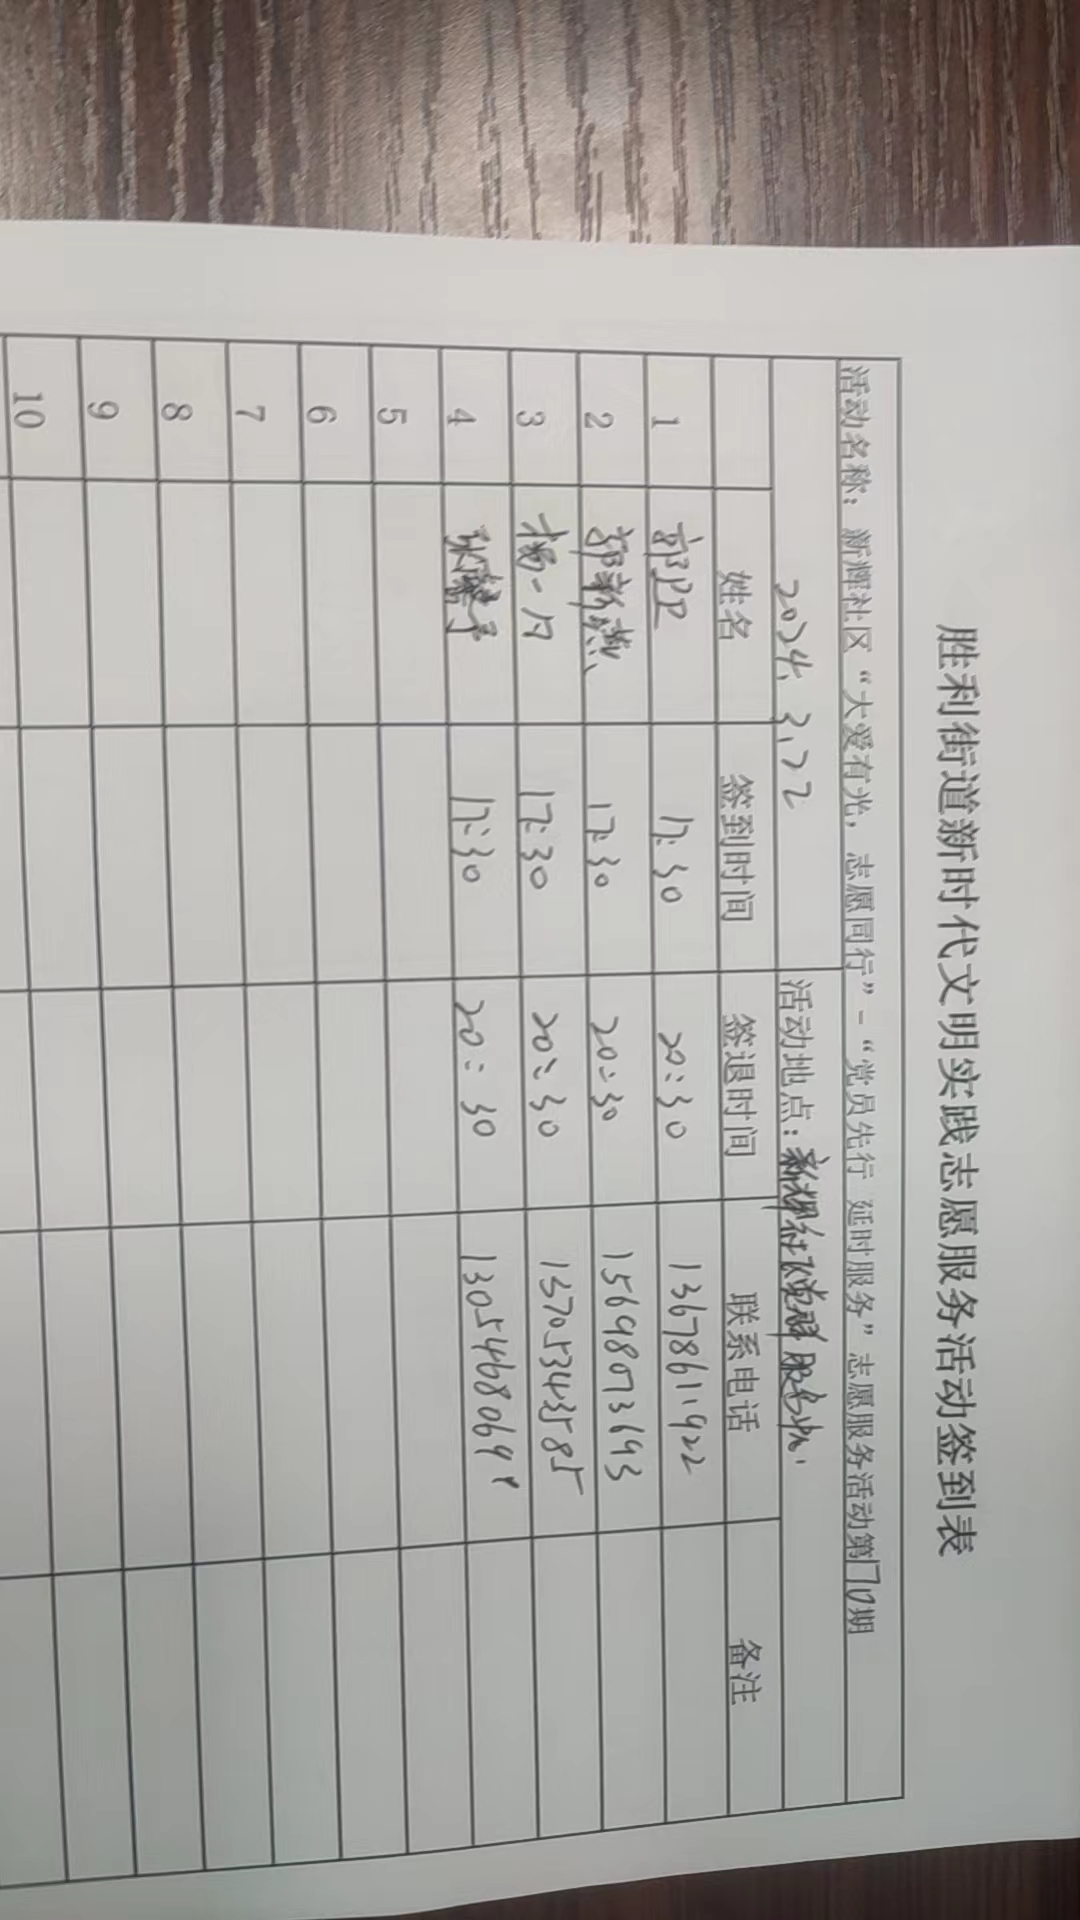 胜利街道新时代文明实践志愿服务活动签到表
活动名称：新辉社区“大爱有光，志愿同行”-“党员先行 延时服务”志愿服务活动第70期
2024.3.22 活动地点：新辉社区党群服务中心.
姓名 签到时间 签退时间 联系电话 备注
1 郭卫 17:30 20:30 13678611922
2 郭新燕 17:30 20:30 15698073693
3 杨一凡 17:30 20:30 13705343585
4 17:30 20:30
5
6
7
8
9
10